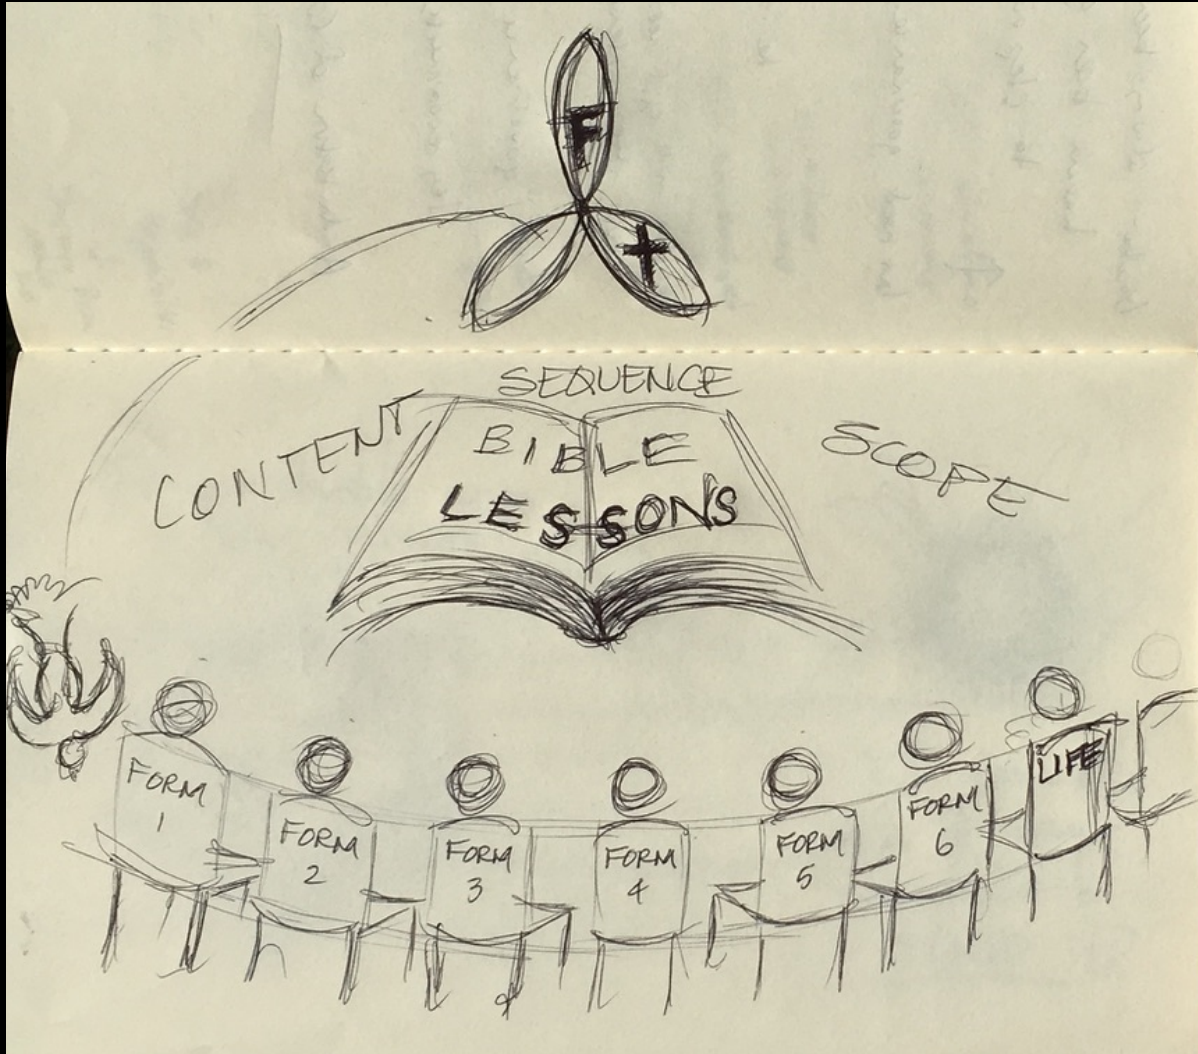 F
SEQUENCE
CONTENT
SCOPE
BIBLE
LESSONS
FORM
1
FORM
2
FORM
3
FORM
4
FORM
5
FORM
6
LIFE